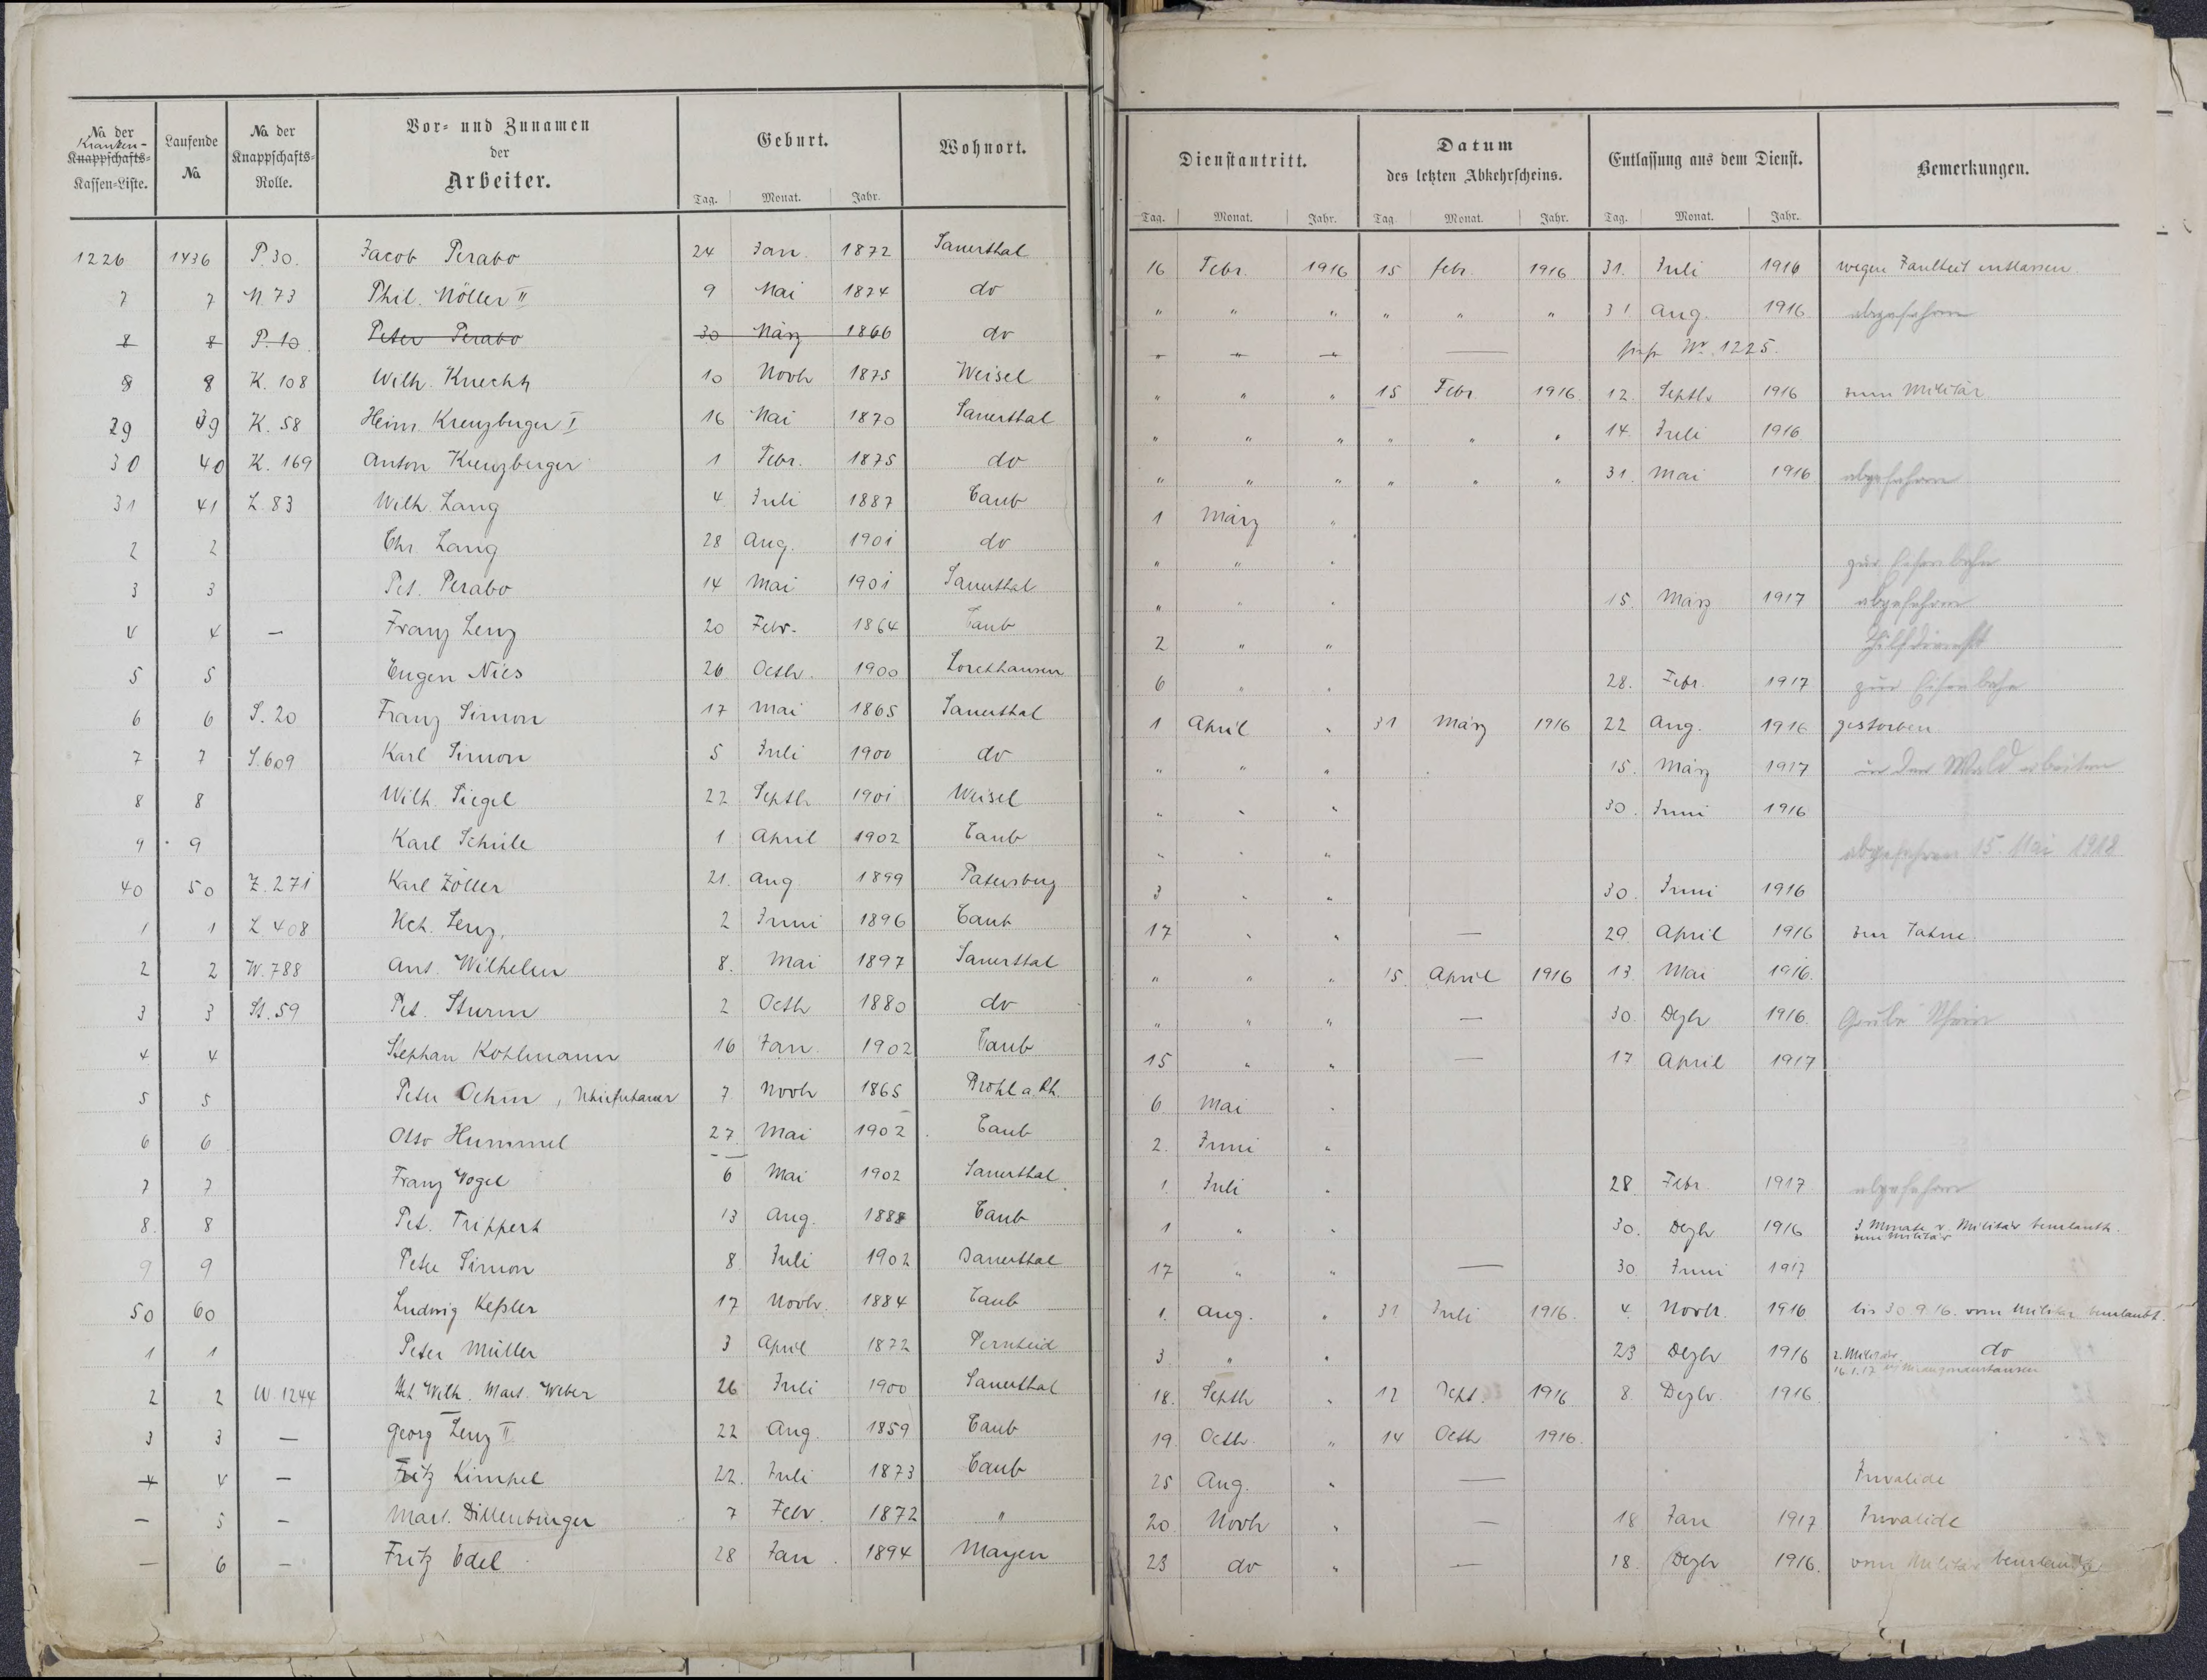 No. der Kranken- Knappschafts- Kassen-Liste. | Laufende No. | No. der Knappschafts- Rolle. | Vor- und Zunamen der Arbeiter. | Geburt. Tag. Monat. Jahr. | Wohnort. | Dienstantritt. Tag. Monat. Jahr. | Datum des letzten Abkehrscheins. Tag. Monat. Jahr. | Entlassung aus dem Dienst. Tag. Monat. Jahr. | Bemerkungen.
1226 1436 P. 30. Jacob Perabo 24 Jan. 1872 Sauerthal 16 Febr. 1916 15 febr. 1916 31. Juli 1916 wegen Faulheit entlassen.
7 7 N 73 Phil. Nöller II 9 Mai 1874 do " " " " " " 31 Aug. 1916 abgefahren
8 8 P. 10. Peter Perabo 30 März 1866 do " " " — siehe Nr. 1225.
8 8 K. 108 Wilh. Knecht 10 Novbr 1875 Weisel " " " 15 Febr. 1916. 12. Septbr 1916 zum Militär.
29 39 K. 58 Heinr. Kreuzberger I 16 Mai 1870 Sauerthal " " " " " " 14. Juli 1916
30 40 K. 169 Anton Kreuzberger 1 Febr. 1875 do " " " " " " 31. Mai 1916 abgefahren
31 41 L. 83 Wilh. Lang 4 Juli 1887 Caub 1 März "
2 2 Chr. Lang 28 Aug. 1901 do " " " zur Eisenbahn
3 3 Pet. Perabo 14 Mai 1901 Sauerthal " " " 15. März 1917 abgefahren
4 4 — Franz Lenz 20 Febr. 1864 Caub 2 " " Hilfsdienst
5 5 Eugen Nies 26 Octbr. 1900 Lorchhausen 6 " " 28. Febr. 1917 zur Eisenbahn
6 6 S. 20 Franz Simon 17 Mai 1865 Sauerthal 1 April " 31 März 1916 22 Aug. 1916 gestorben.
7 7 S. 609 Karl Simon 5 Juli 1900 do " " " 15. März 1917 in den Wald arbeiten
8 8 Wilh. Siegel 22 Septbr 1901 Weisel " " " 30. Juni 1916
9 9 Karl Schüle 1 April 1902 Caub " " " abgefahren 15. Mai 1918
40 50 Z. 271 Karl Zöller 21. Aug. 1899 Patersberg 3 " " 30. Juni 1916
1 1 L. 408 Hch. Lenz, 2 Juni 1896 Caub 17 " " — 29. April 1916 zur Fahne.
2 2 W. 788 Ant. Wilhelm 8. Mai 1897 Sauerthal " " " 15. April 1916 13 Mai 1916.
3 3 St. 59 Pet. Sturm 2 Octbr 1880 do " " " — 30. Dezbr 1916. Grube Rhein
4 4 Stephan Kohlmann 16 Jan. 1902 Caub 15 " " — 17 April 1917
5 5 Peter Oehm, 7 Novbr 1865 Brohl a. Rh. 6. Mai "
6 6 Otto Hummel 27. Mai 1902. Caub 2. Juni "
7 7 Franz Vogel 6 Mai 1902 Sauerthal. 1. Juli " 28. Febr. 1917 abgefahren
8. 8 Pet. Trippert 13 Aug. 1888 Caub 1 " " 30. Dezbr 1916 3 Monate v. Militär beurlaubt.
zum Militär
9 9 Peter Simon 8 Juli 1902 Sauerthal 17 " " — 30. Juni 1917
50 60 Ludwig Keßler 17 Novbr. 1884 Caub 1. Aug. " 31 Juli 1916. 4. Novbr. 1916 bis 30.9.16. vom Militär beurlaubt.
1 1 Peter Müller 3 April 1872 3. " " 23 Dezbr 1916 z. Militär do
16.1.17
2 2 W. 1244 Wilh. Mart. Weber 26 Juli 1900 Sauerthal 18. Septbr " 12 Sept. 1916 8. Dezbr. 1916
3 3 — Georg Lenz II 22 Aug. 1859 Caub 19. Octbr. " 14 Octbr 1916.
4 4 — Fritz Kimpel 22. Juli 1873 Caub 25 Aug. " — Invalide
— 5 — Mart. Dillenburger 7 Febr 1872 " 20. Novbr " — 18 Jan 1917 Invalide
— 6 — Fritz Edel 28 Jan. 1894 Mayen 23 do " — 18. Dezbr 1916. vom Militär beurlaubt